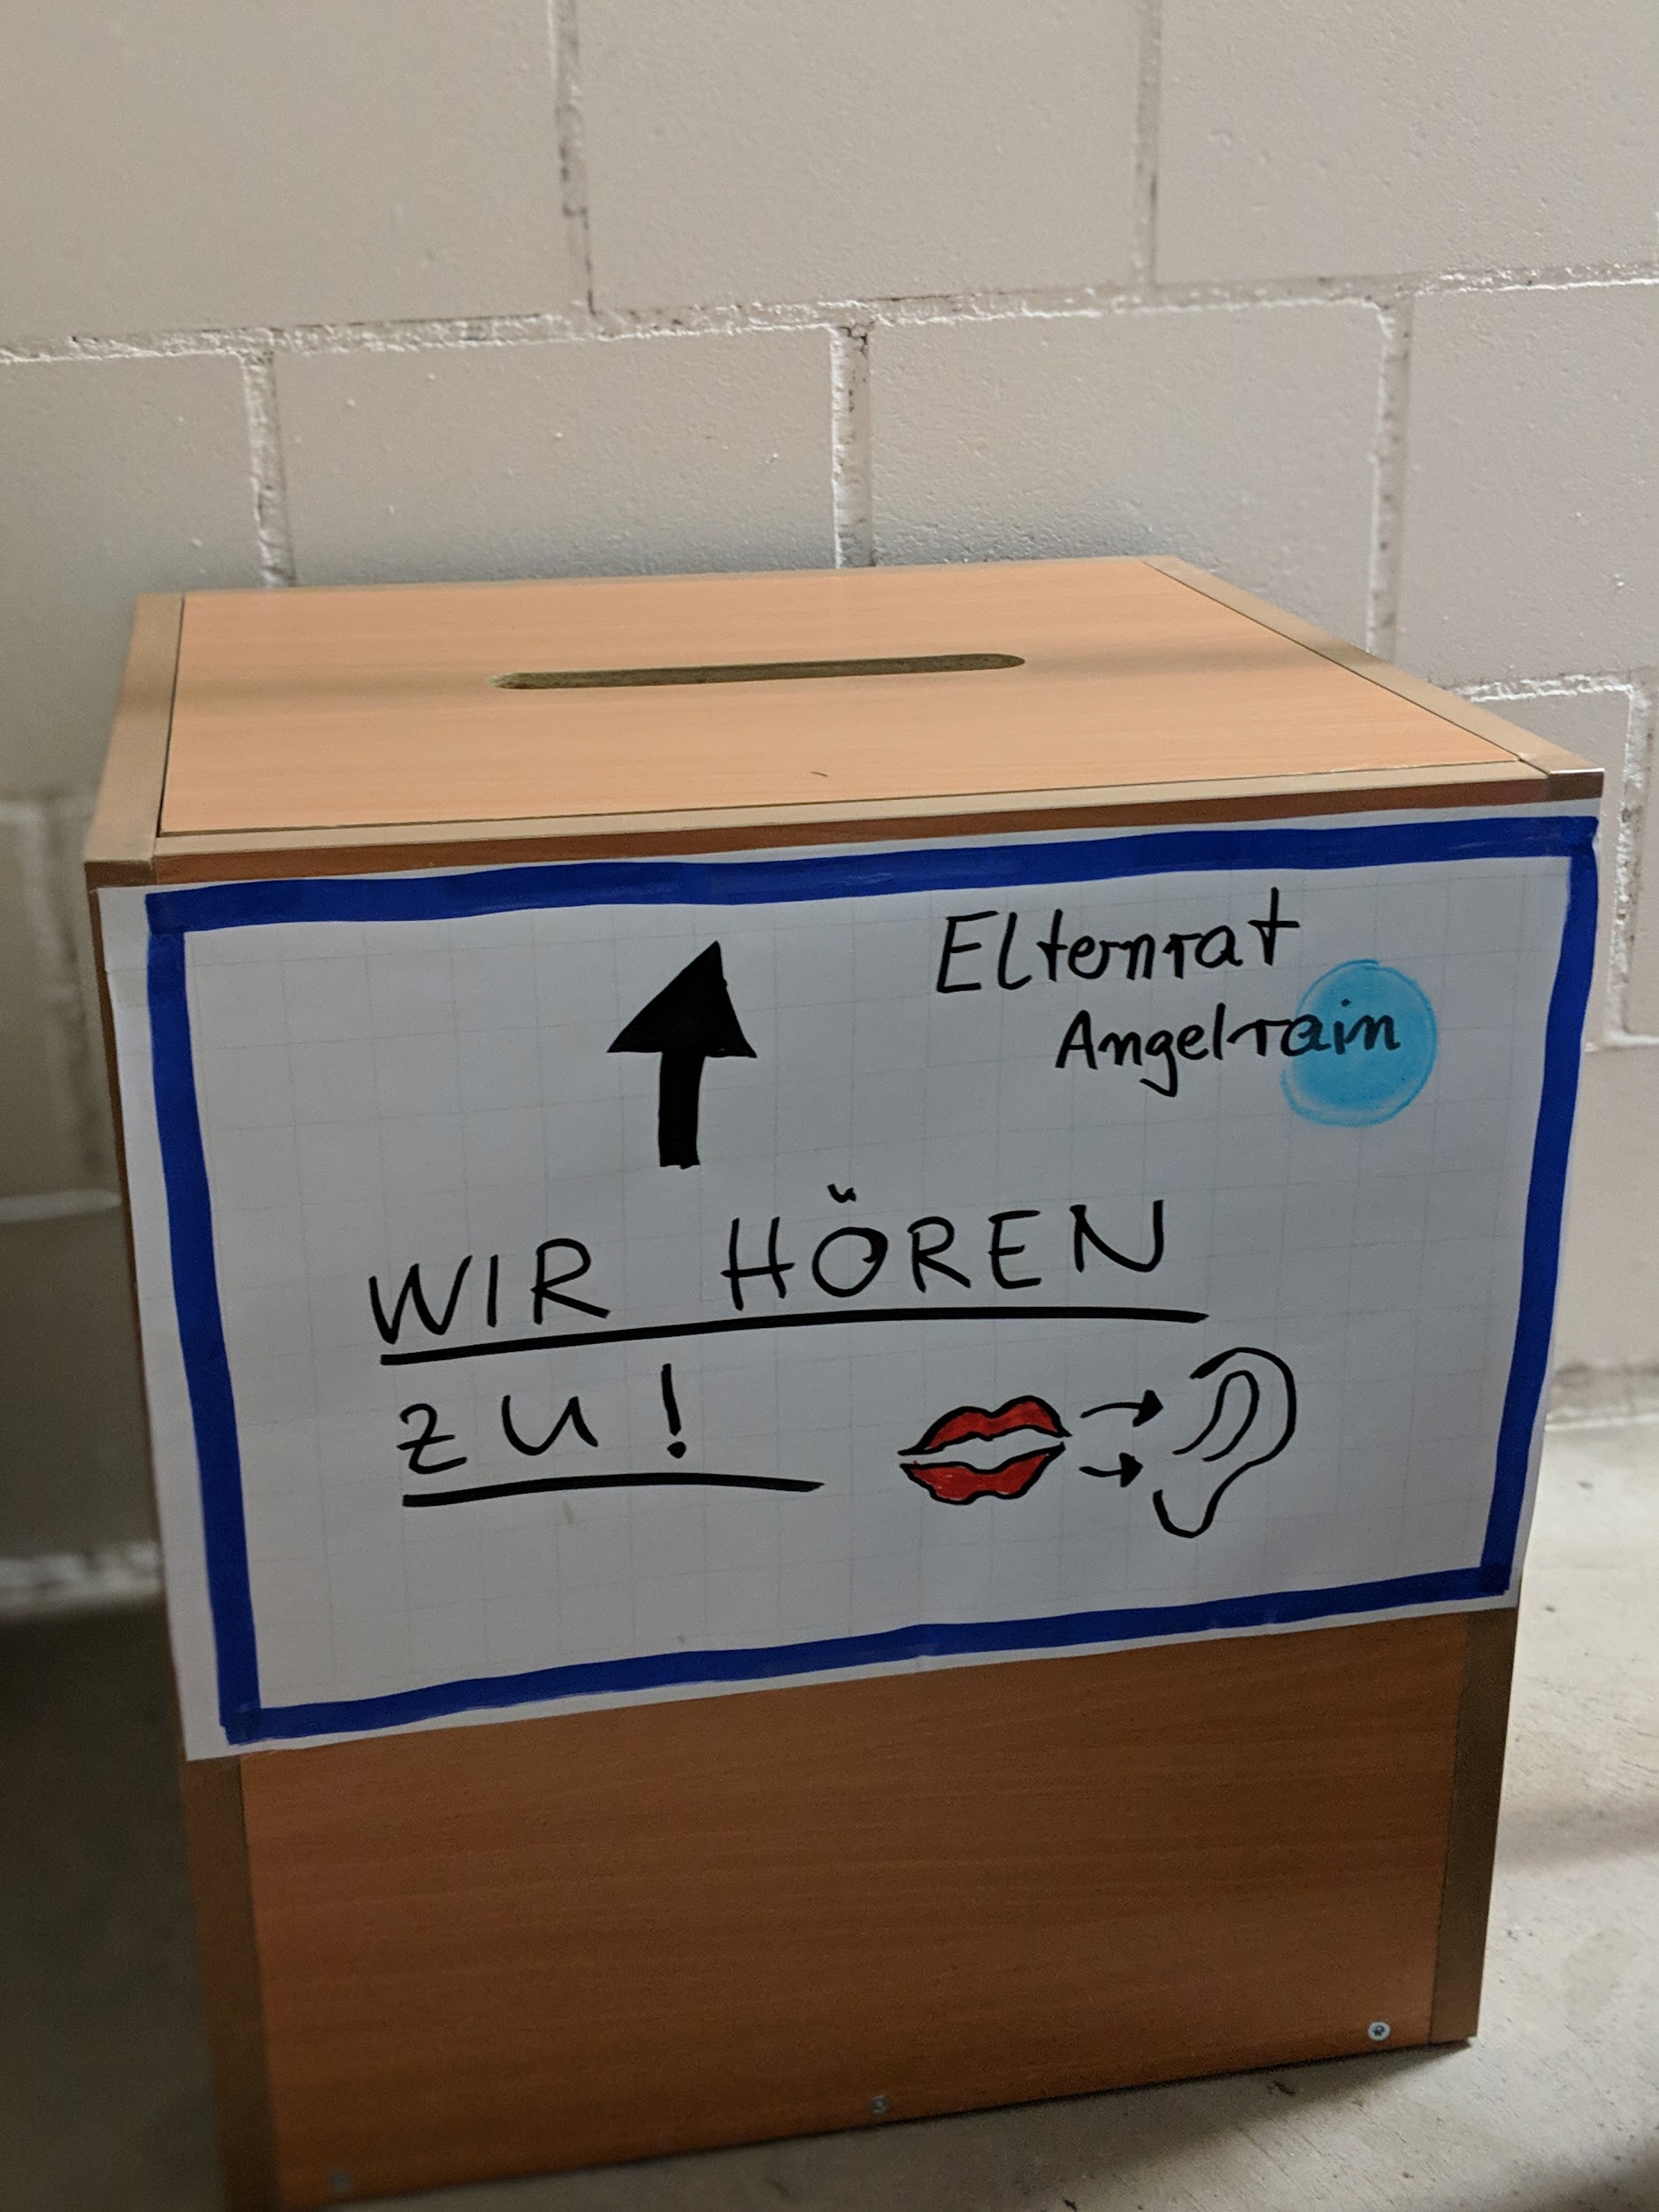 Elternrat
Angelrain
WIR HÖREN
ZU!